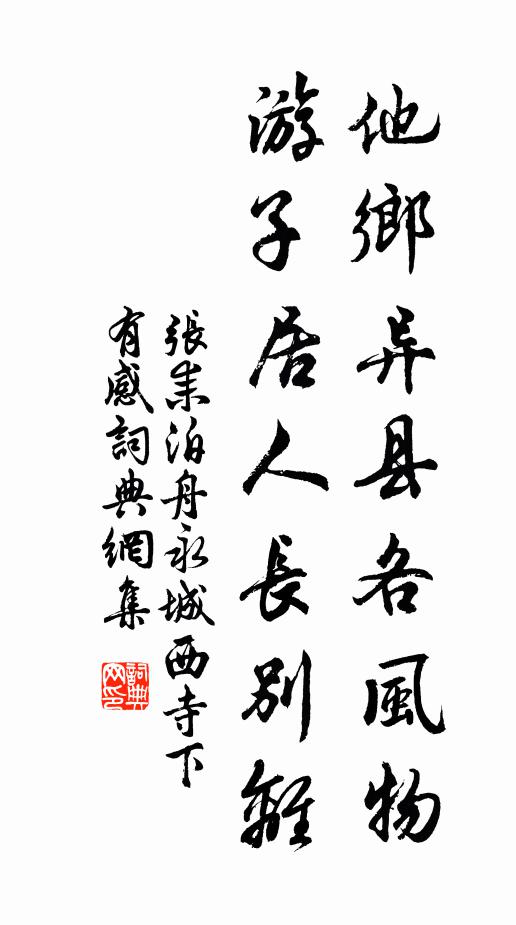 他鄉异县各風物
游子居人長别離
張耒泊舟永城西寺下
有感詞典網集
詞典网印